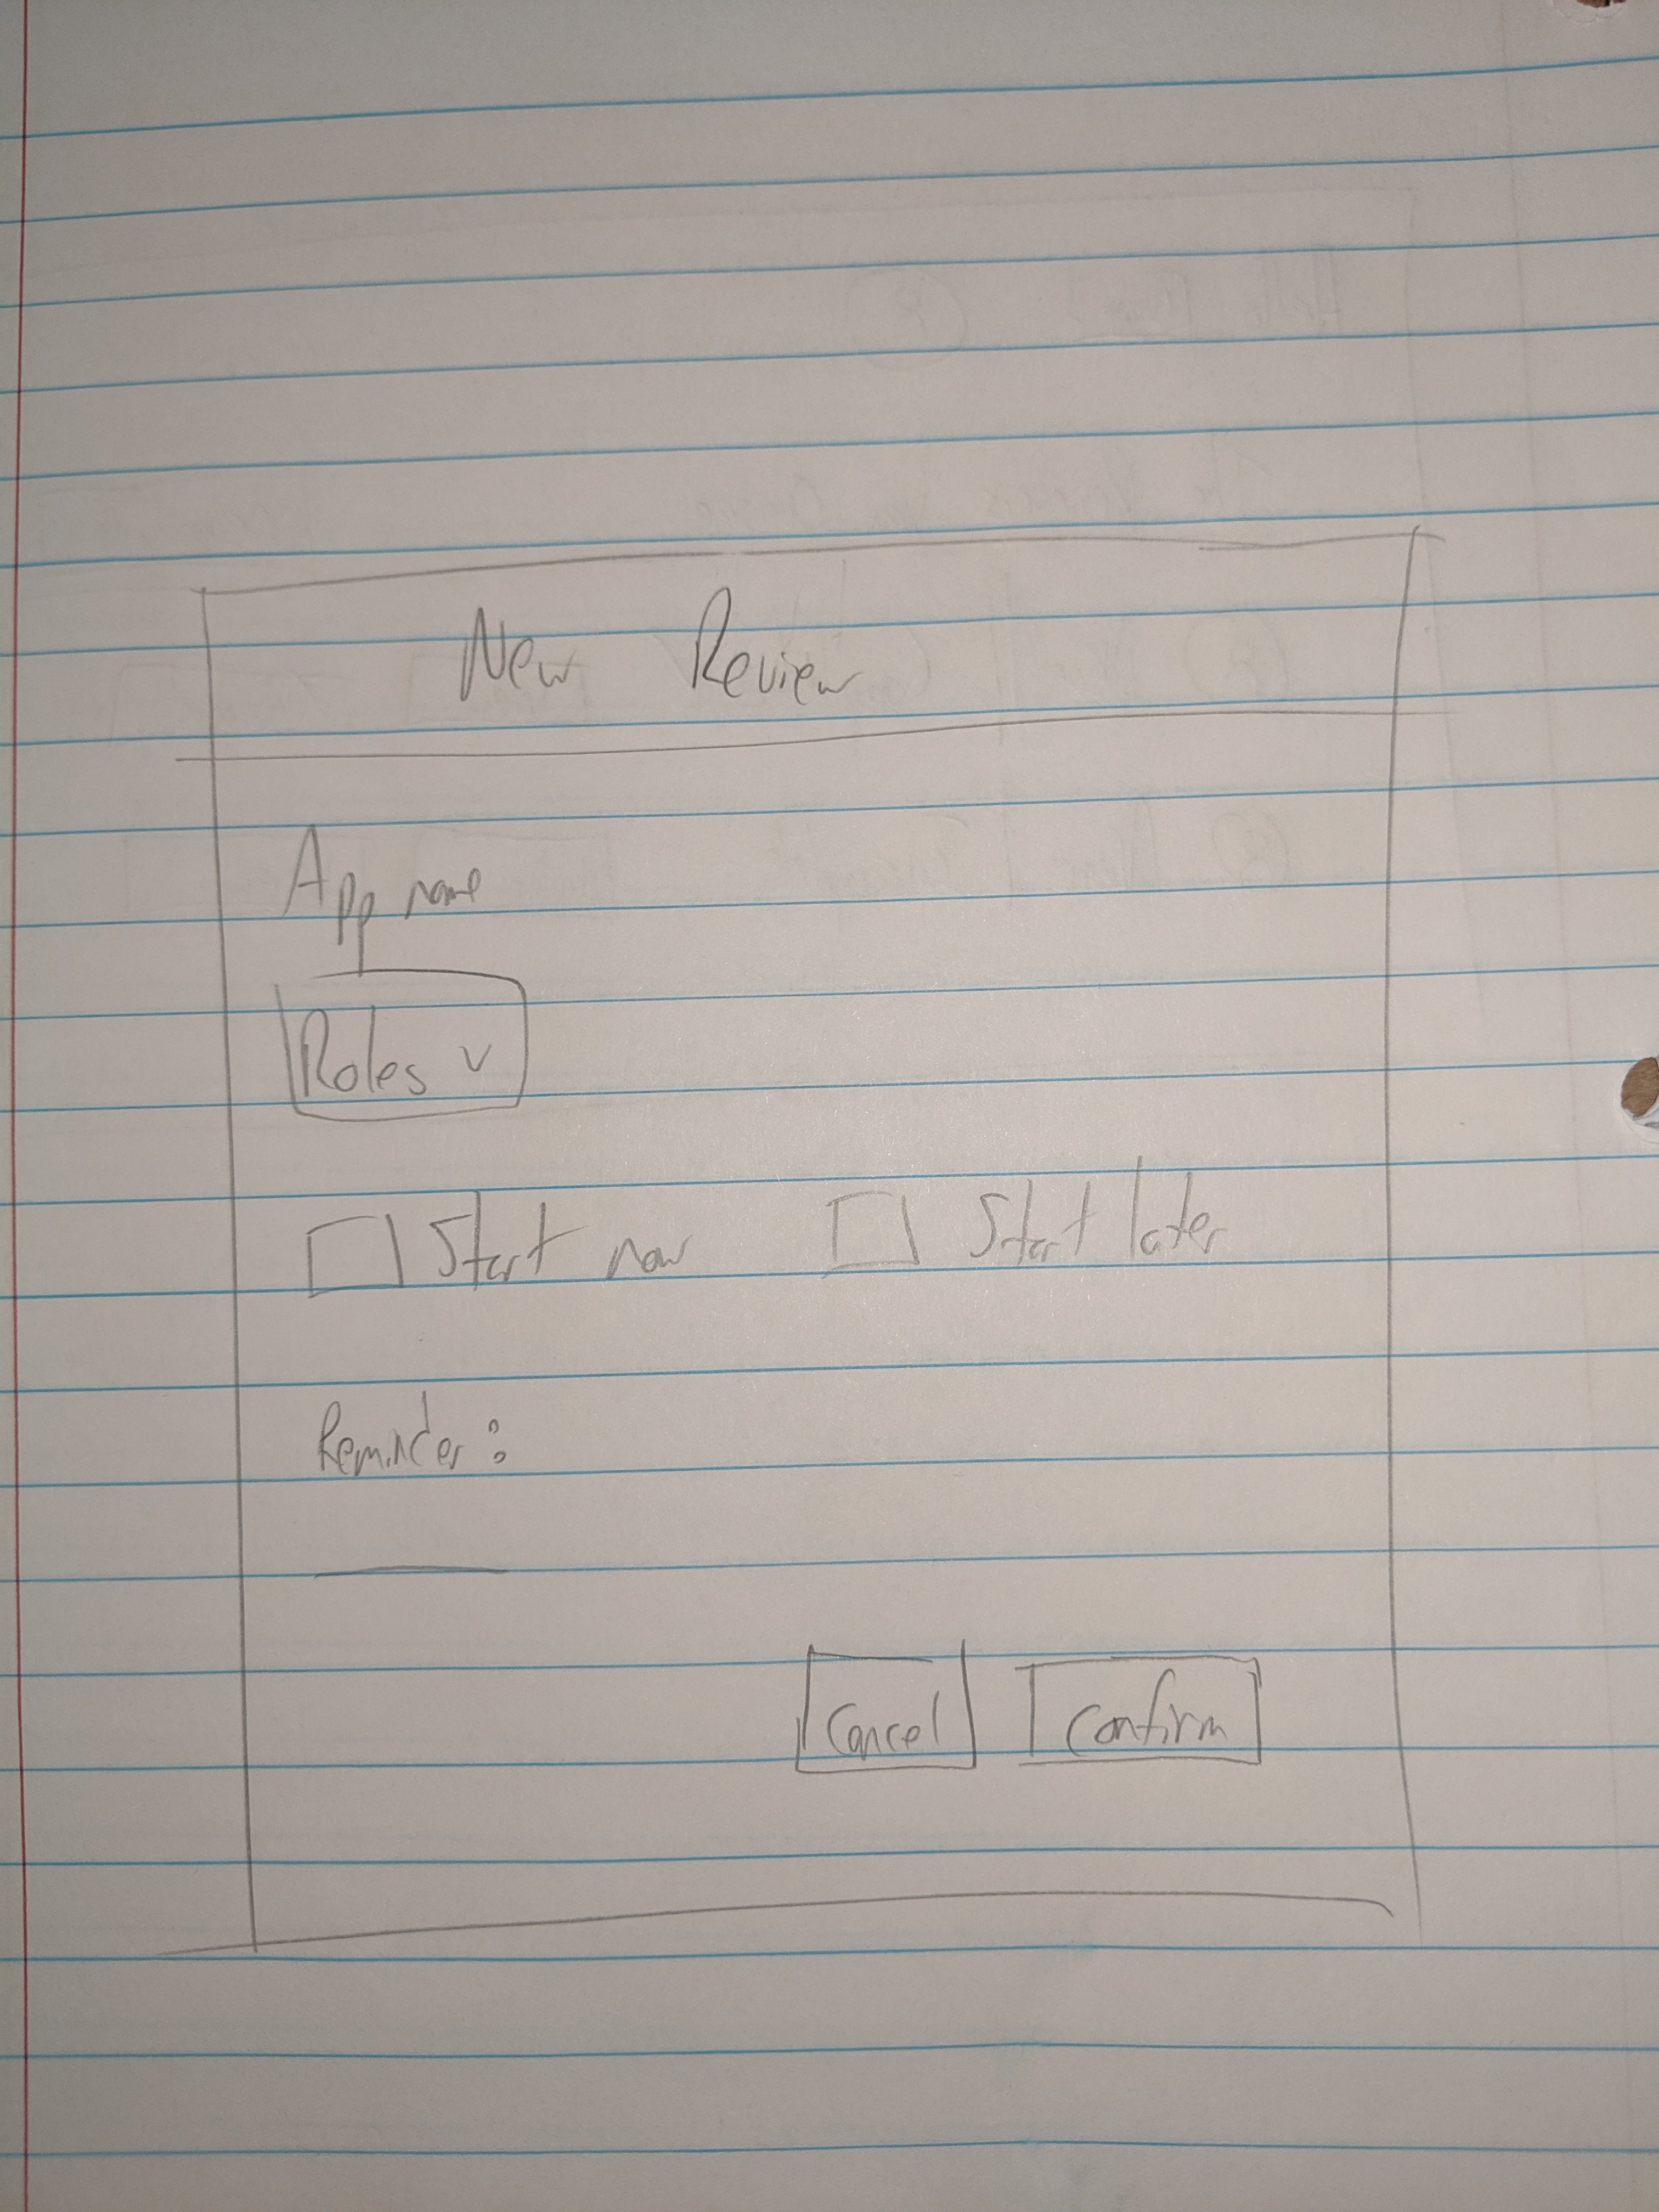 New Review
App name
Roles v
Start now Start later
Reminder:
Cancel Confirm